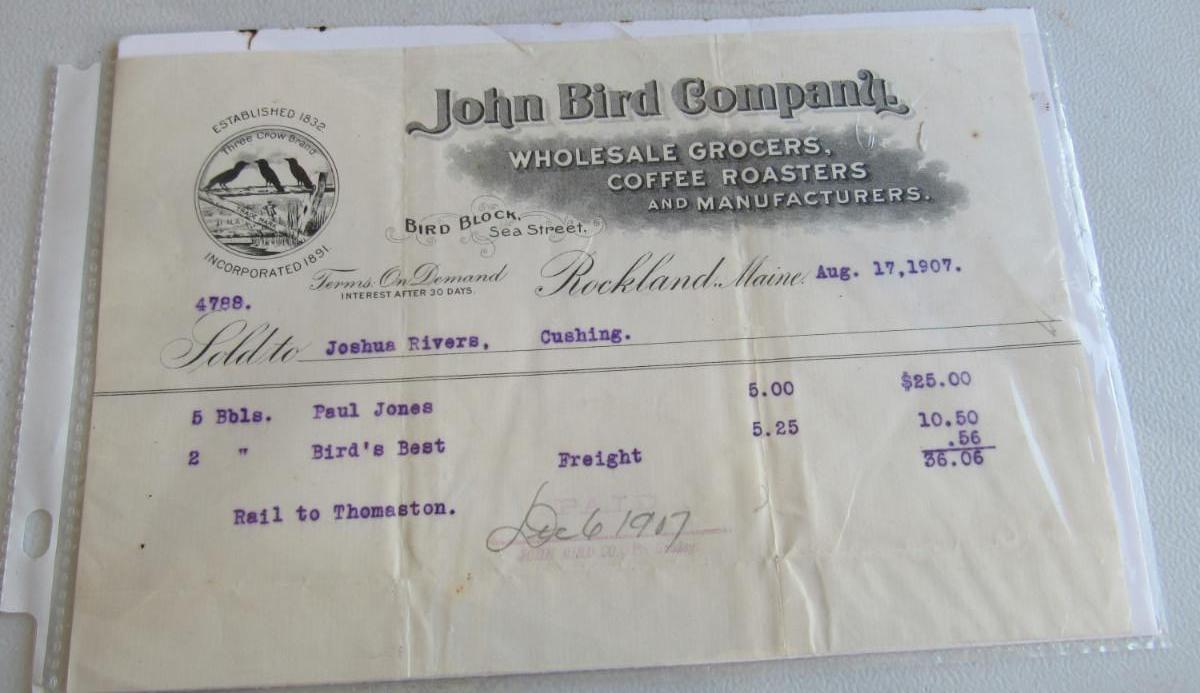 John Bird Company.
ESTABLISHED 1832
Three Crow Brand
TRADE MARK
INCORPORATED 1891.
WHOLESALE GROCERS,
COFFEE ROASTERS
AND MANUFACTURERS.
BIRD BLOCK,
Sea Street.
Terms: On Demand
INTEREST AFTER 30 DAYS.
Rockland., Maine. Aug. 17,1907.
4788.
Sold to Joshua Rivers, Cushing.
5 Bbls. Paul Jones 5.00 $25.00
2 " Bird's Best 5.25 10.50
Freight .56
36.06
Rail to Thomaston.
PAID
Dec 6 1907
JOHN BIRD CO.